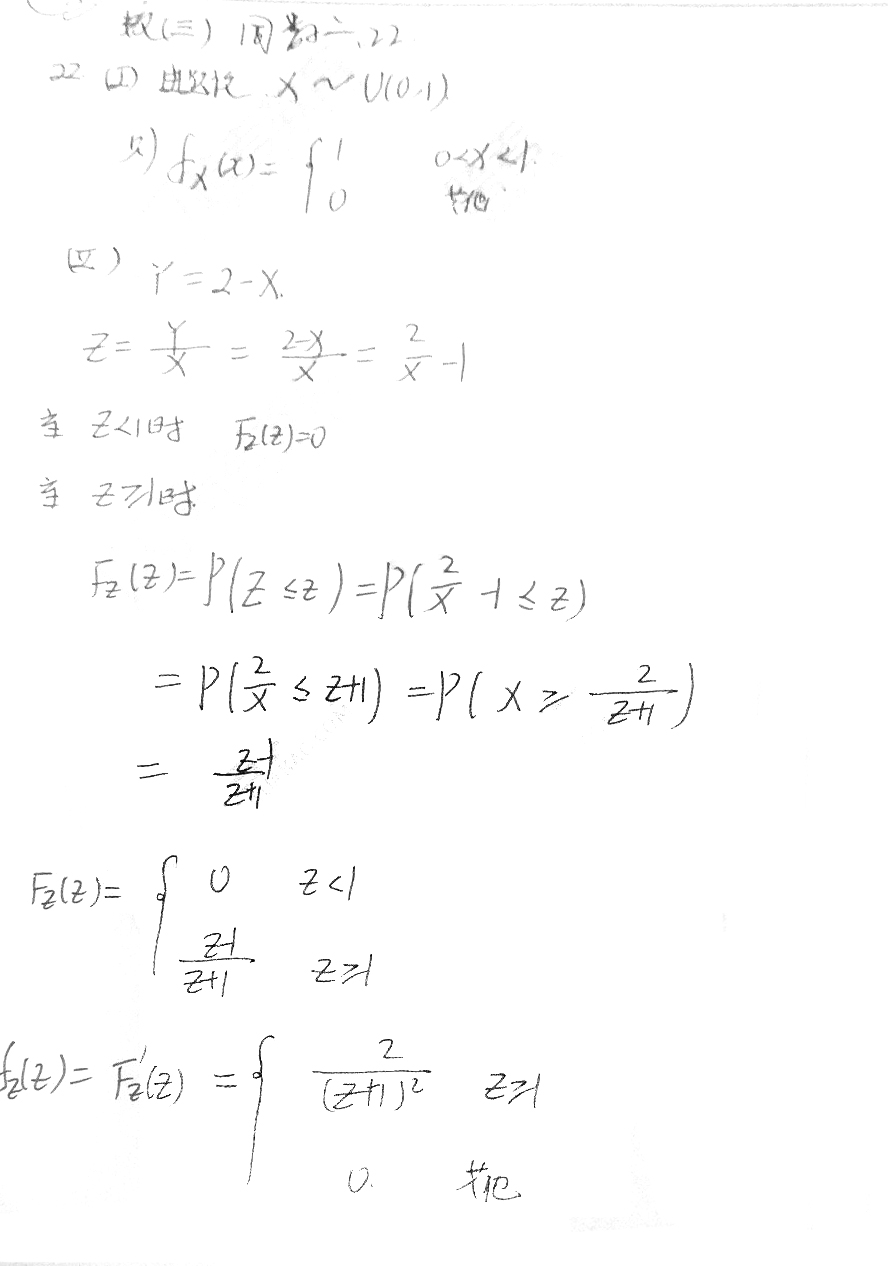 数(三) 同数一、22
22 (I) 由题设 X ~ U(0,1)
则 f_X(x) = { 1 0<x<1.
0 其他
(II) Y = 2-X.
Z = Y/X = (2-X)/X = 2/X - 1
当 Z<1时 F_Z(z)=0
当 z≥1时.
F_Z(z) = P(Z ≤ z) = P(2/X - 1 ≤ z)
= P(2/X ≤ z+1) = P(X ≥ 2/(z+1))
= (z-1)/(z+1)
F_Z(z) = { 0 z<1
(z-1)/(z+1) z≥1
f_Z(z) = F_Z'(z) = { 2/(z+1)² z≥1
0. 其他